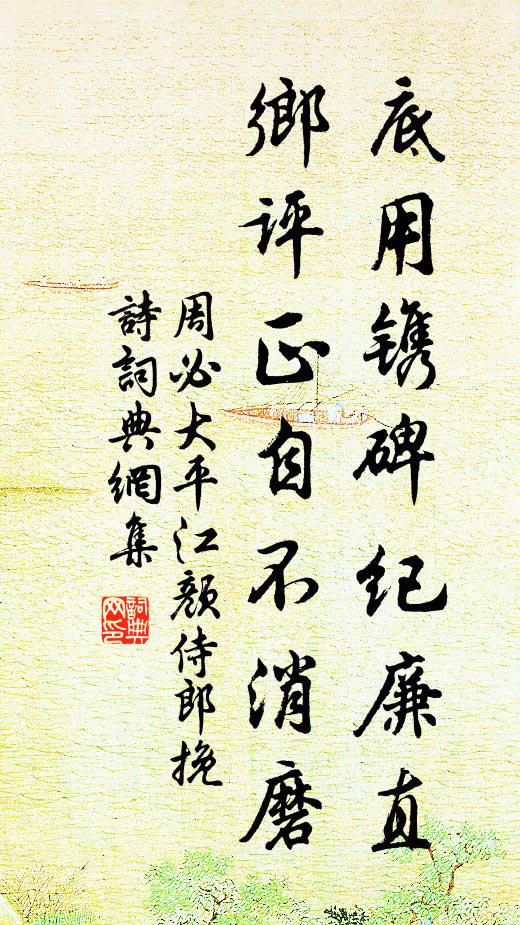 底用镌碑纪廉直
鄉評正自不消磨
周必大平江顏侍郎挽
詩詞典網集
詞典
网印